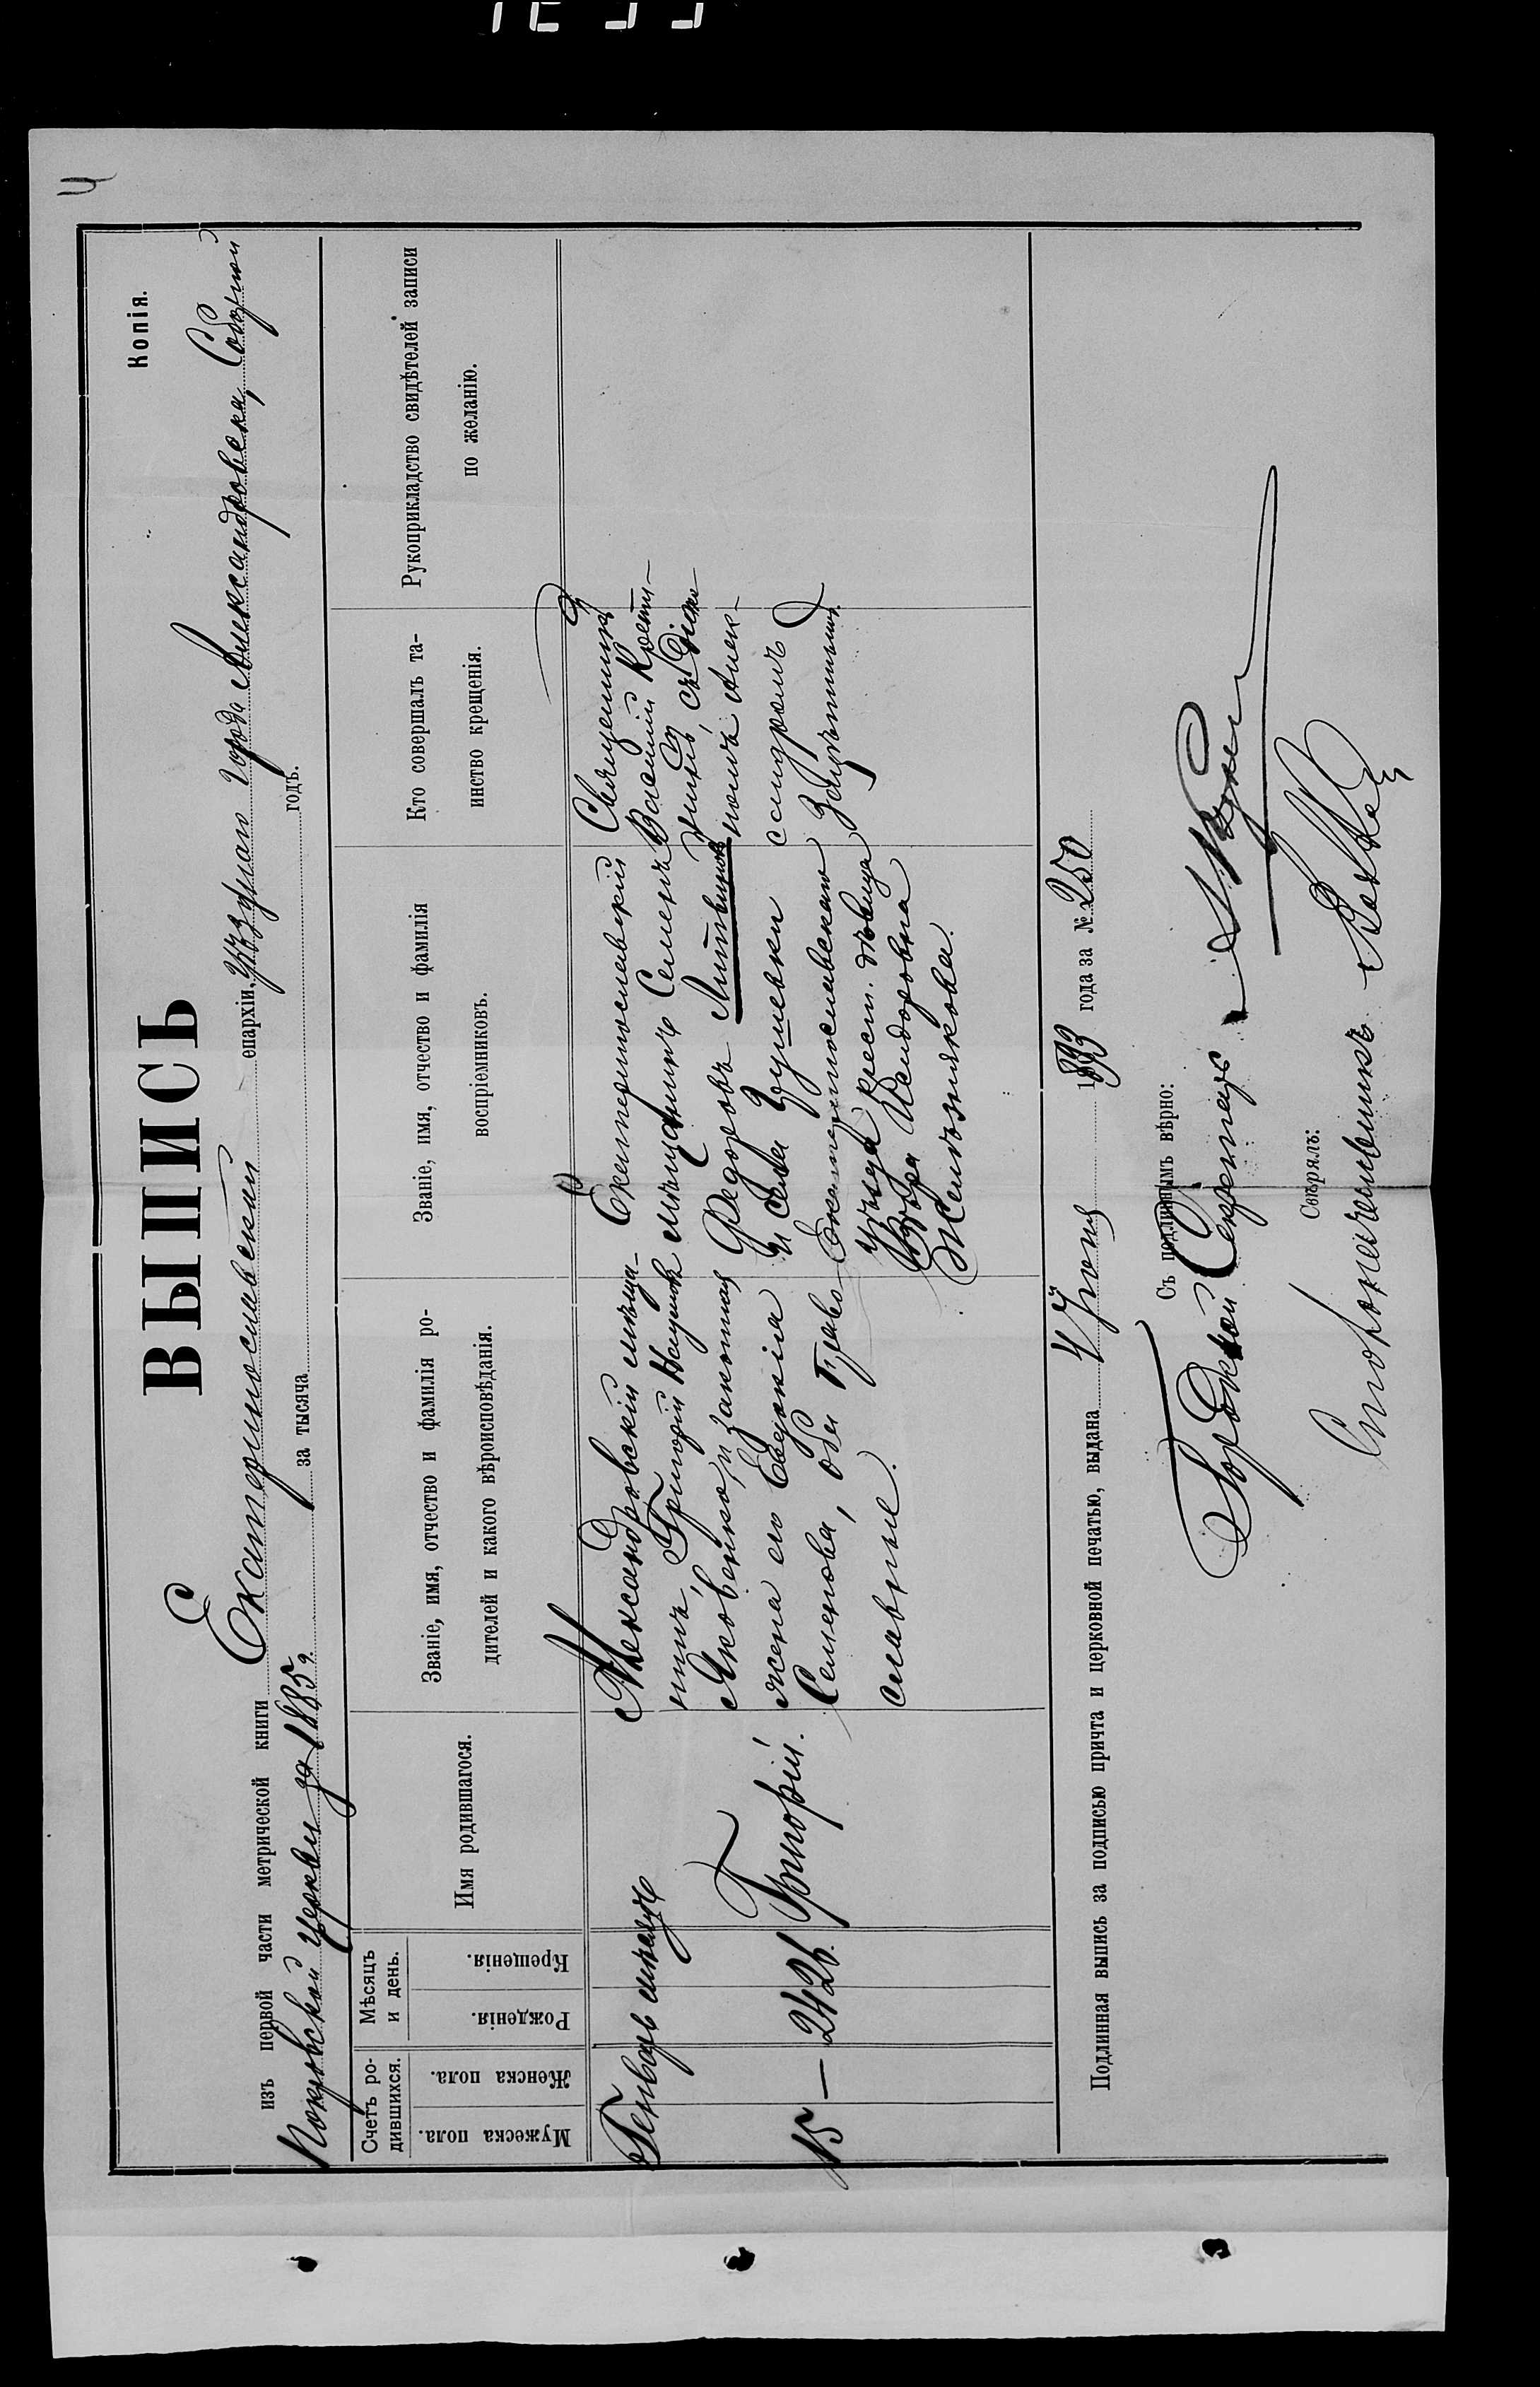 4
Копія.
ВЫПИСЬ
изъ первой части метрической книги Екатеринославской епархіи, уѣзднаго города Александровска, Соборной
Покровской церкви за 1885 г. за тысяча годъ.
Счетъ ро-
дившихся.
Мужеска пола.
Женска пола.
Мѣсяцъ
и день.
Рожденія.
Крещенія.
Имя родившагося.
Званіе, имя, отчество и фамилія ро-
дителей и какого вѣроисповѣданія.
Званіе, имя, отчество и фамилія
воспріемниковъ.
Кто совершалъ та-
инство крещенія.
Рукоприкладство свидѣтелей записи
по желанію.
Генварь мѣсяцъ
15 — 24 26.
Григорій.
Александровскій мѣща-
нинъ, Григорій Наумовъ
Яковенко, и законная
жена его Евдокія
Семенова, оба Право-
славные.
Екатеринославскій
мѣщанинъ Семенъ
Федоровъ Литвинов
и села Гушевки
Екатеринославскаго
уѣзда крест. дѣвица
Исидоровна
Желѣзнякова.
Священникъ
Василій
съ Діако-
номъ Алек-
сандромъ
Подлинная выпись за подписью причта и церковной печатью, выдана 4 Іюня 1893 года за № 250
Съ подлиннымъ вѣрно:
Городской Секретарь
Свѣрялъ:
Столоначальникъ